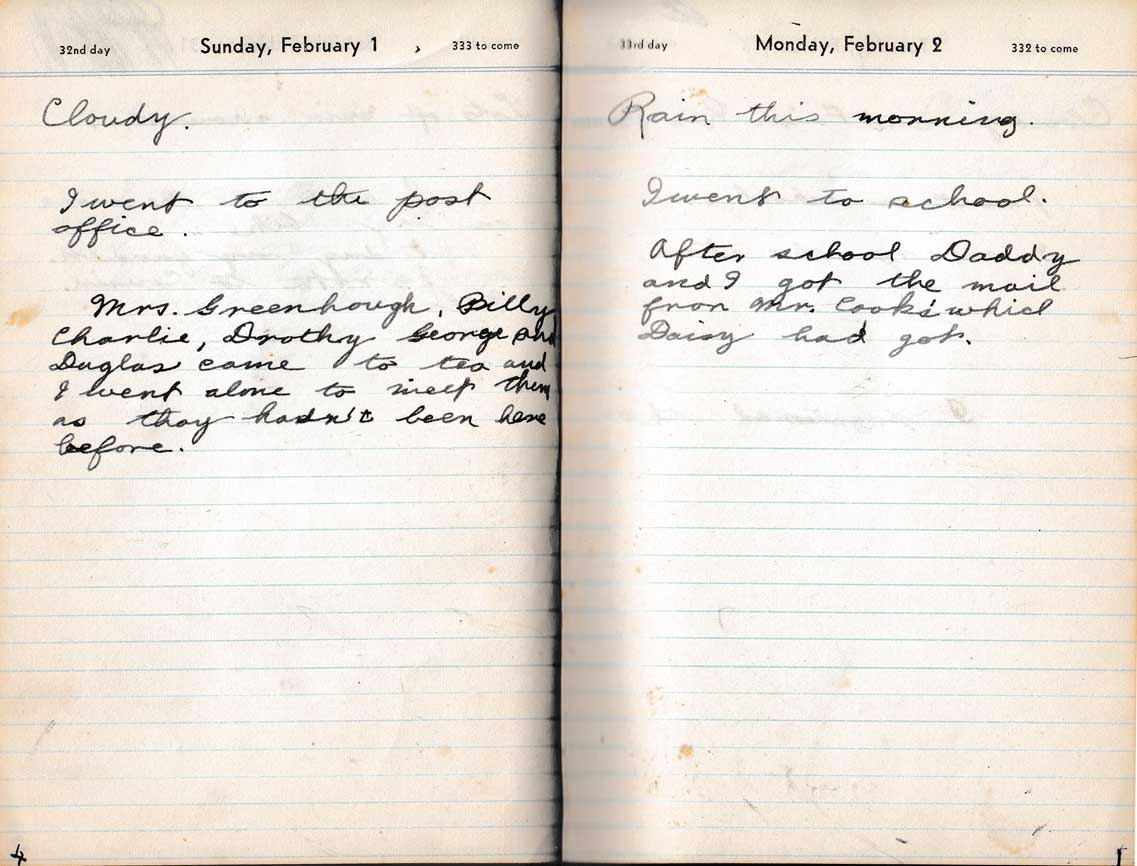 32nd day Sunday, February 1 333 to come
Cloudy.
I went to the post
office.
Mrs. Greenhough, Billy
Charlie, Drothy George and
Duglas came to tea and
I went alone to meet them
as thay hadn't been here
before.
4
33rd day Monday, February 2 332 to come
Rain this morning.
I went to school.
After school Daddy
and I got the mail
fron Mr. Cook's which
Daisy had got.